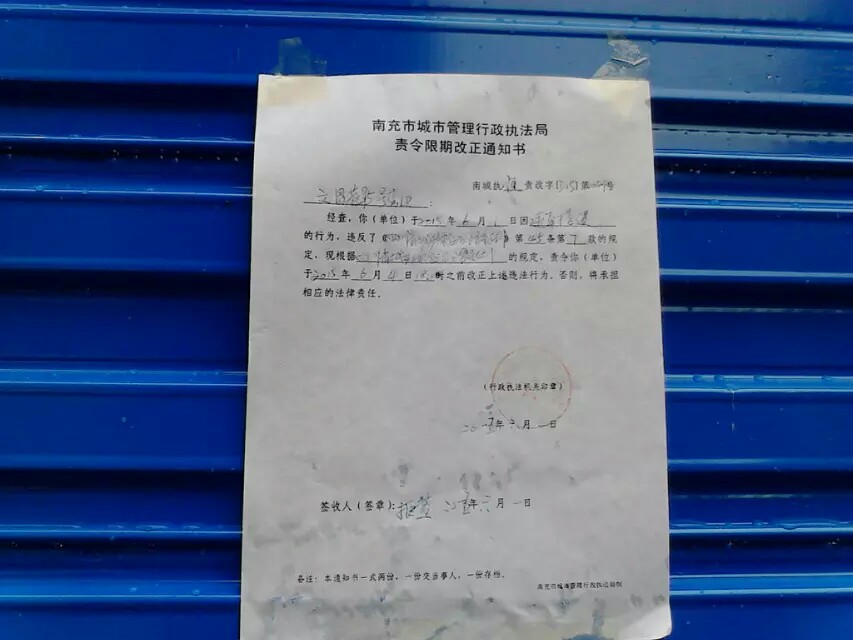 南充市城市管理行政执法局
责令限期改正通知书
南城执 责改字[2015]第 号
:
经查,你(单位)于2015年6月1日因违章搭建
的行为,违反了《 》第 条第 款的规
定,现根据 的规定,责令你(单位)
于2015年6月4日 时之前改正上述违法行为。否则,将承担
相应的法律责任。
(行政执法机关印章)
二〇一五年六月一日
签收人(签章):拒签 二〇一五年六月一日
备注:本通知书一式两份,一份交当事人,一份存档。
南充市城市管理行政执法局制